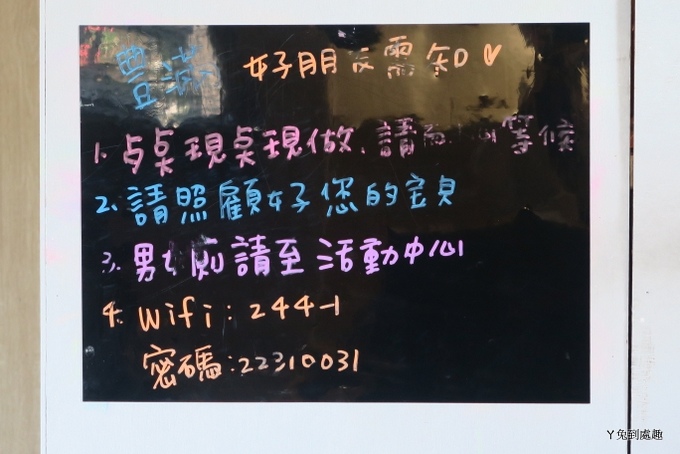 豐滿 好朋友需知
1. 桌現桌現做、請耐心等候
2. 請照顧好您的宝貝
3. 男女廁請至活動中心
4. Wifi:244-1
密碼:22310031
Y兔到處趣